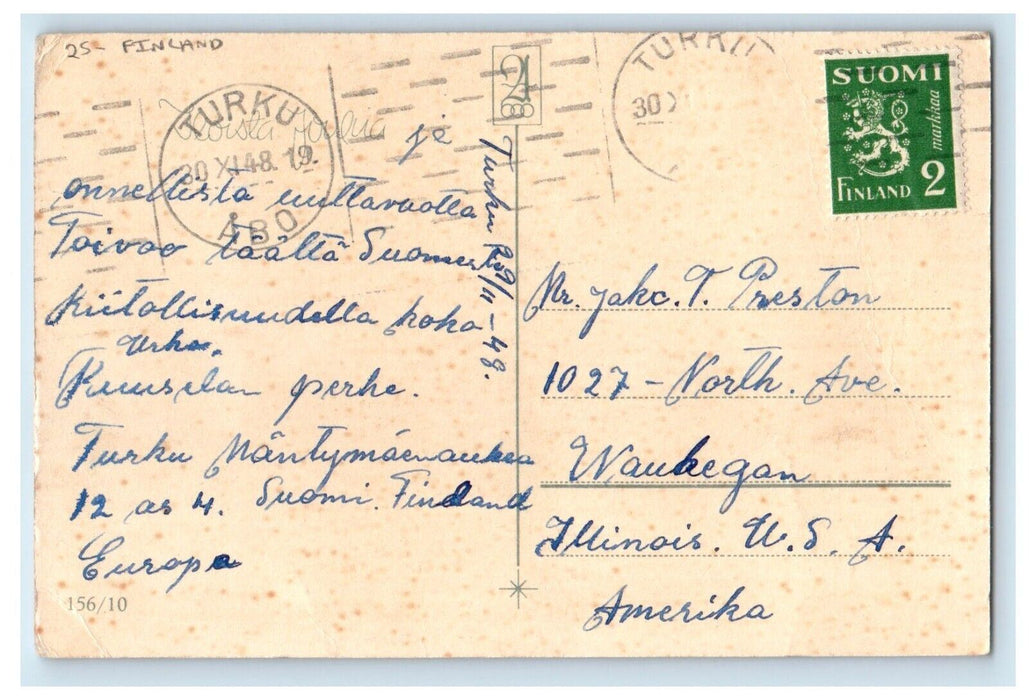 25- FINLAND
TURKU
30 XI 48. 19.
ÅBO
TURKU
30 XI
SUOMI
markkaa
FINLAND 2
Joulua
ja
onnellista uuttavuotta
Toivoo täältä Suomesta
Kiitollisuudella koko
Urho.
Kuuselan perhe.
Turku Mäntymäenaukea
12 as 4. Suomi. Findland
Europa
156/10
Turku 29/11-48.
Mr. Jakc. T. Preston
1027 - North. Ave.
Waukegan
Illinois. U.S.A.
Amerika